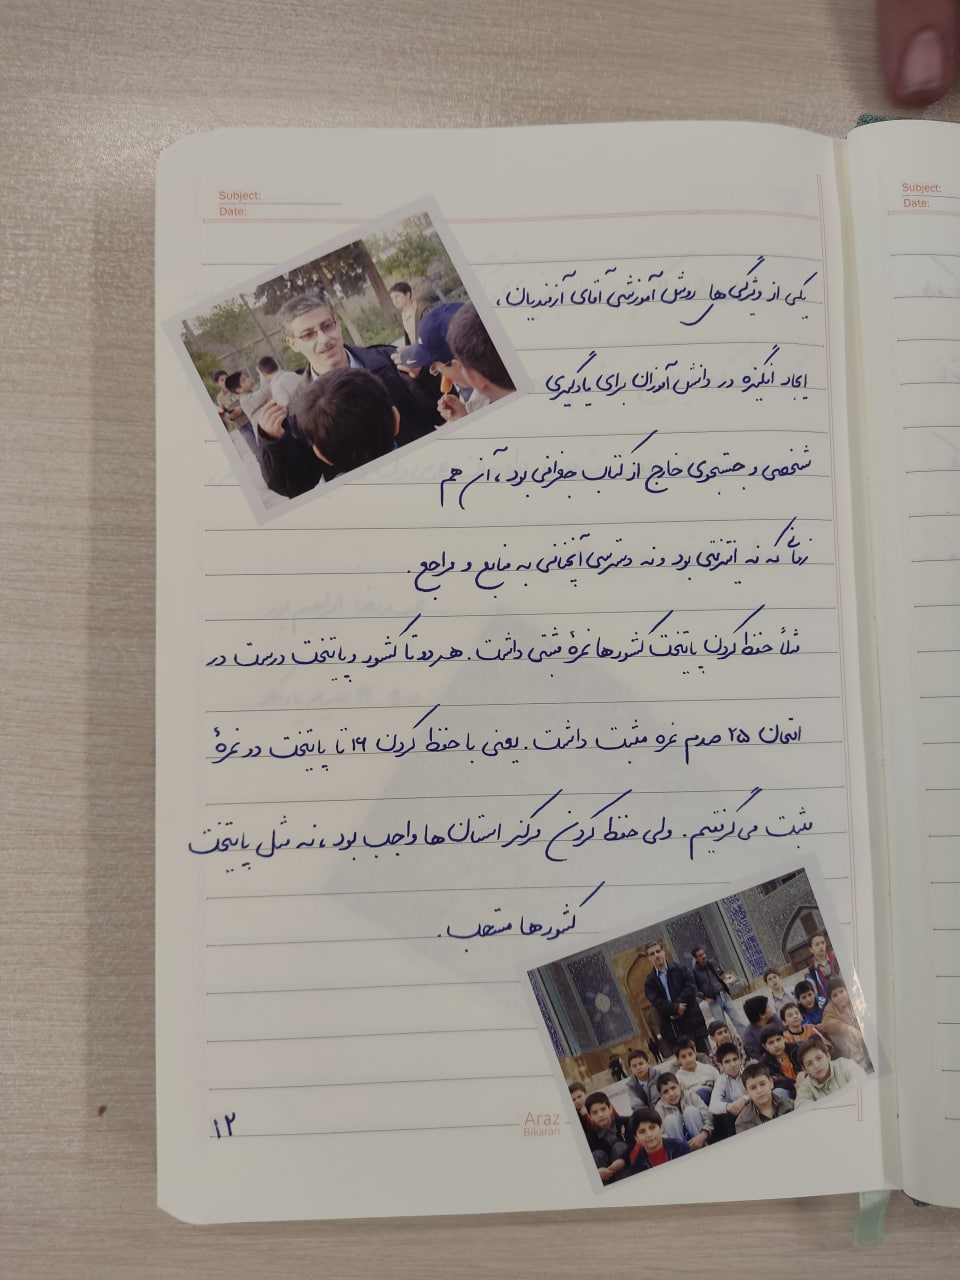 Subject:
Date:
یکی از ویژگی‌های روش آموزشی آقای آزمندیان،
ایجاد انگیزه در دانش آموزان برای یادگیری
شخصی و جستجوی خارج از کتاب جغرافی بود، آن هم
زمانی که نه اینترنتی بود و نه دسترسی آنچنانی به منابع و مراجع.
مثلاً حفظ کردن پایتخت کشورها نمرهٔ مثبتی داشت. هر دو تا کشور و پایتخت درست در
امتحان ۲۵ صدم نمره مثبت داشت. یعنی با حفظ کردن ۱۶ تا پایتخت دو نمرهٔ
مثبت می‌گرفتیم. ولی حفظ کردن مرکز استان‌ها واجب بود، نه مثل پایتخت
کشورها مستحب.
۱۲
Araz
Bikaran
Subject:
Date: